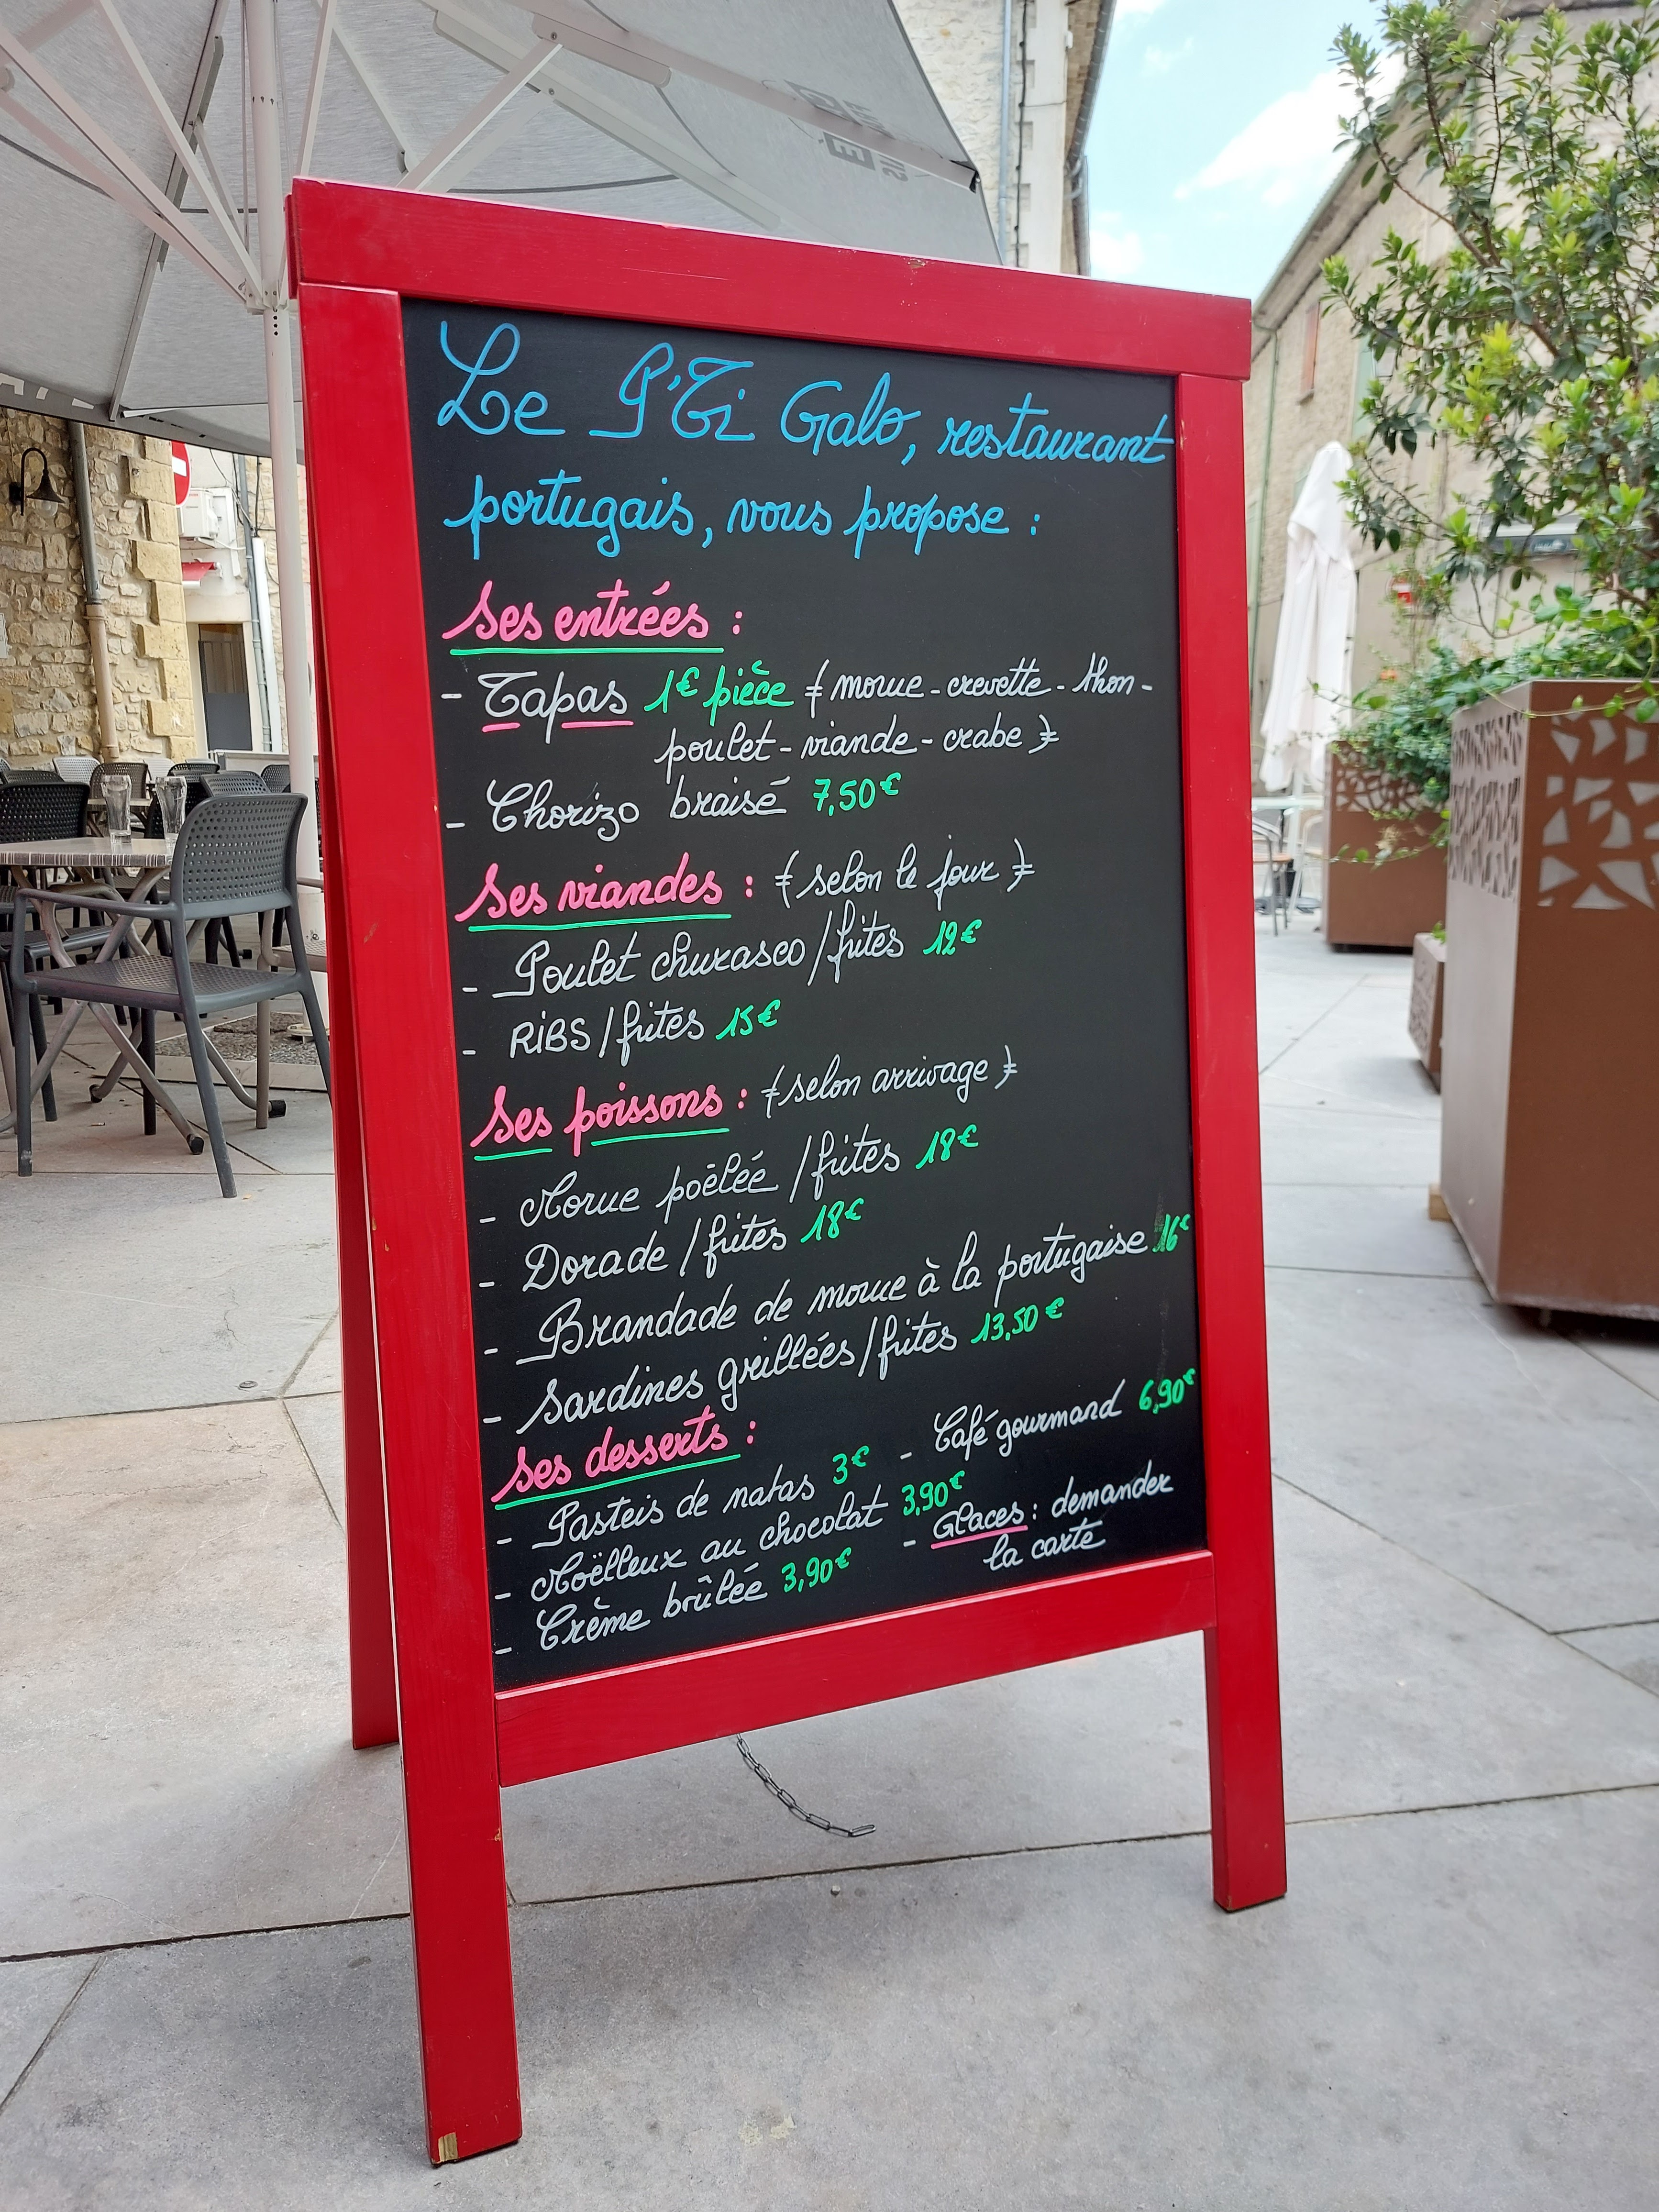 Le P'Ti Galo, restaurant
portugais, vous propose :
Ses entrées :
- Tapas 1€ pièce ( morue - crevette - thon -
poulet - viande - crabe )
- Chorizo braisé 7,50€
Ses viandes : ( selon le jour )
- Poulet churasco / frites 12€
- RIBS / frites 15€
Ses poissons : ( selon arrivage )
- Morue poêlée / frites 18€
- Dorade / frites 18€
- Brandade de morue à la portugaise 16€
- Sardines grillées / frites 13,50€
Ses desserts :
- Pasteis de natas 3€
- Moëlleux au chocolat 3,90€
- Crème brûlée 3,90€
- Café gourmand 6,90€
- Glaces : demander
la carte